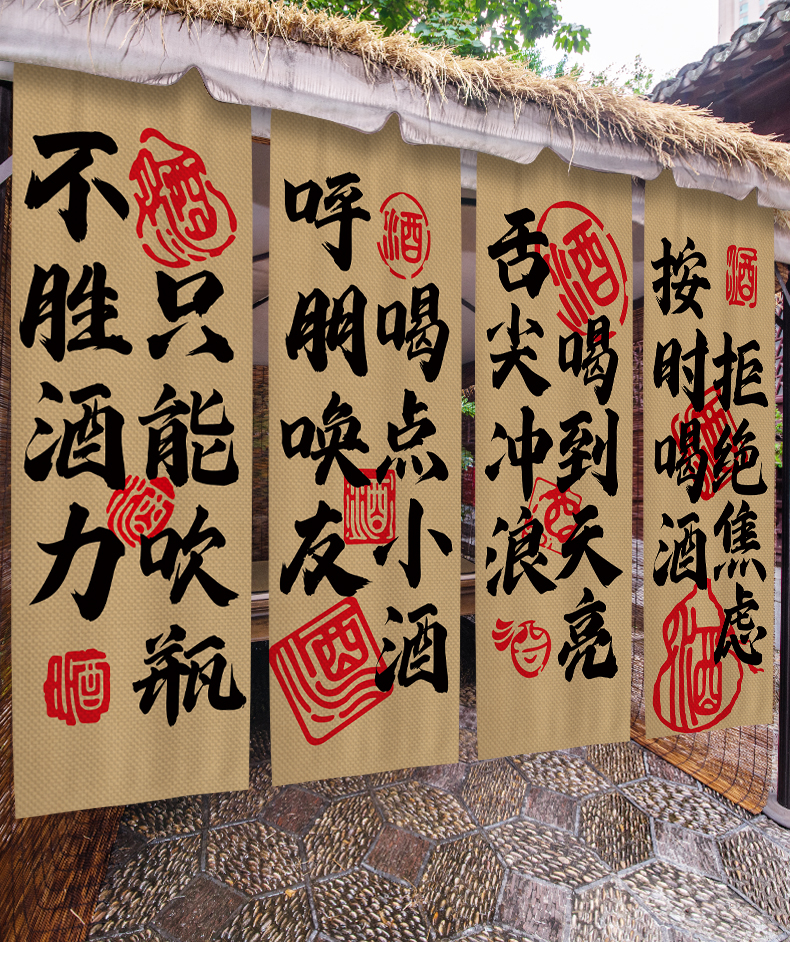 不胜酒力
只能吹瓶
酒
酒
酒
呼朋唤友
喝点小酒
酒
酒
酒
舌尖冲浪
喝到天亮
酒
酒
酒
按时喝酒
拒绝焦虑
酒
酒
酒